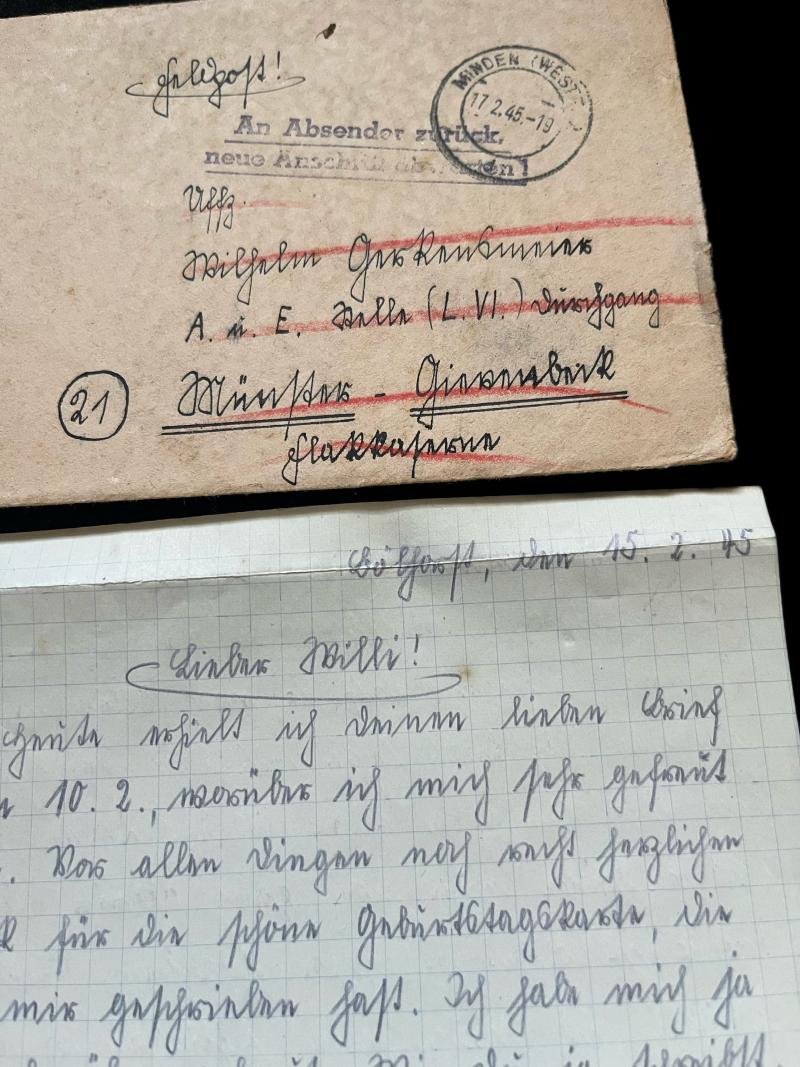 Feldpost!
MINDEN (WESTF)
17.2.45.-19
An Absender zurück,
neue Anschrift abwarten!
Uffz.
Wilhelm Gerkensmeier
A. u. E. Stelle (L.VI.) Durchgang
21
Münster - Gievenbeck
Flakkaserne
Bölhorst, den 15. 2. 45
Lieber Willi!
Heute erhielt ich deinen lieben Brief
10. 2., worüber ich mich sehr gefreut
. Vor allen Dingen noch recht herzlichen
k für die schöne Geburtstagskarte, die
mir geschrieben hast. Ich habe mich ja